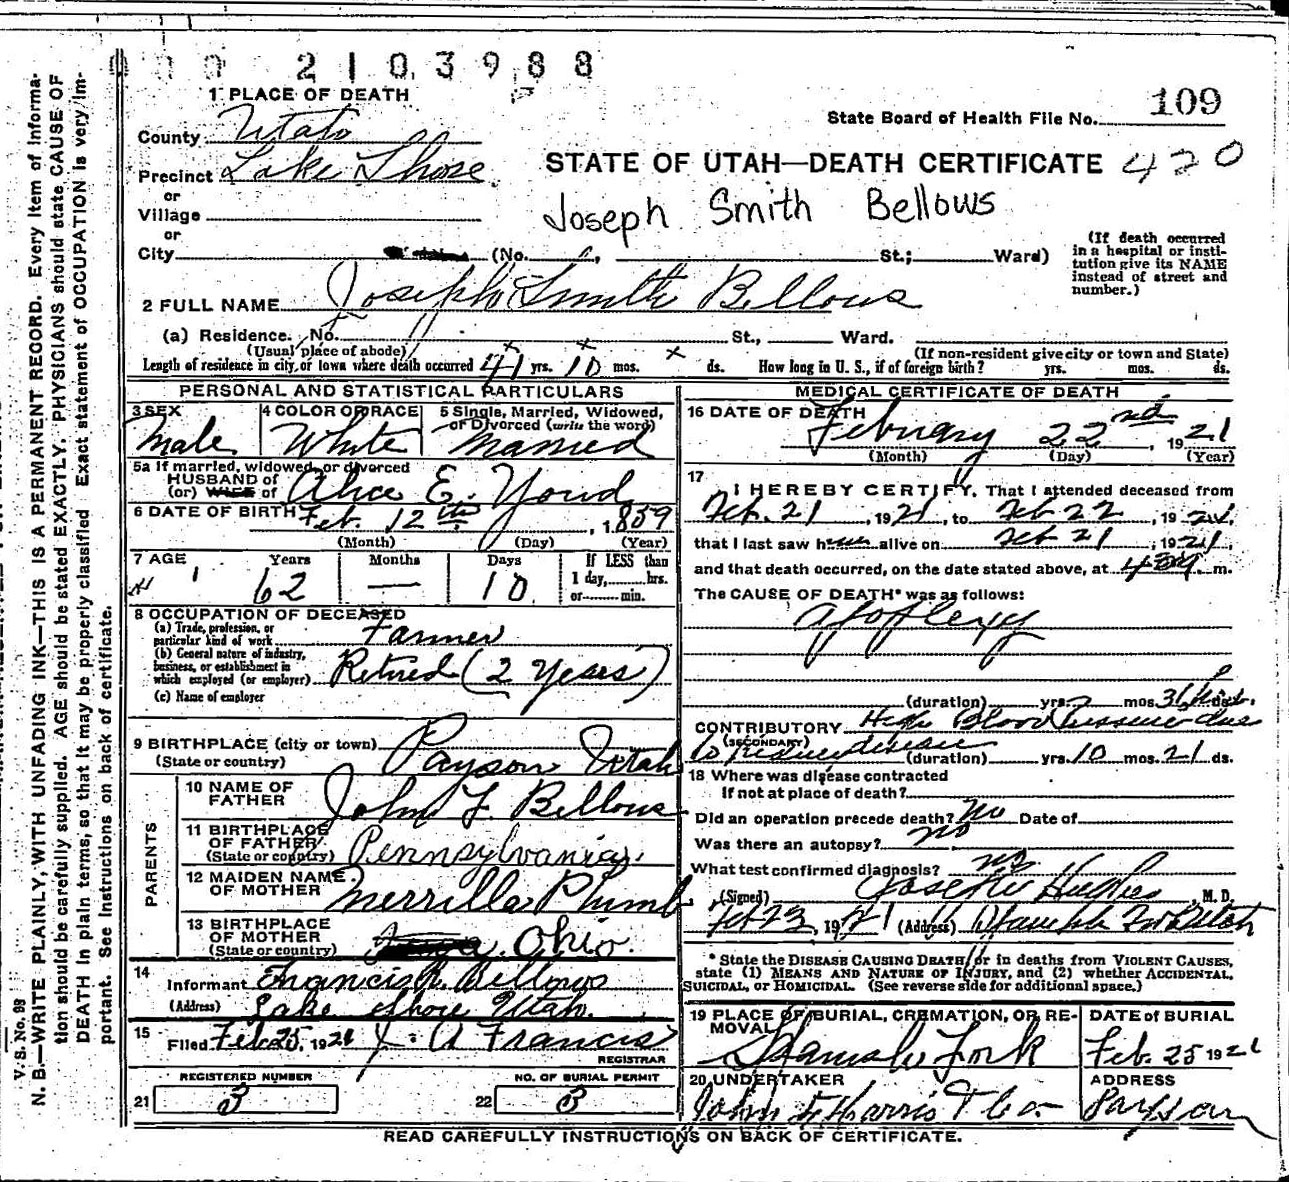 2103988
1 PLACE OF DEATH
109
State Board of Health File No.
County Utah
Precinct Lake Shore
STATE OF UTAH—DEATH CERTIFICATE 420
or
Village
Joseph Smith Bellows
or
City (No. St.; Ward)
(If death occurred in a hospital or institution give its NAME instead of street and number.)
2 FULL NAME Joseph Smith Bellows
(a) Residence. No. St., Ward.
(Usual place of abode) (If non-resident give city or town and State)
Length of residence in city, or town where death occurred 41 yrs. 10 mos. x ds. How long in U. S., if of foreign birth? yrs. mos. ds.
PERSONAL AND STATISTICAL PARTICULARS
3 SEX Male
4 COLOR OR RACE White
5 Single, Married, Widowed, or Divorced (write the word) Married
5a If married, widowed, or divorced
HUSBAND of
(or) WIFE of Alice E. Youd
6 DATE OF BIRTH Feb. 12th, 1859
(Month) (Day) (Year)
7 AGE Years Months Days If LESS than
62 — 10 1 day, hrs.
or min.
8 OCCUPATION OF DECEASED
(a) Trade, profession, or particular kind of work Farmer
(b) General nature of industry, business, or establishment in which employed (or employer) Retired (2 Years)
(c) Name of employer
9 BIRTHPLACE (city or town) Payson Utah
(State or country)
PARENTS
10 NAME OF FATHER John F. Bellows
11 BIRTHPLACE OF FATHER (State or country) Pennsylvania.
12 MAIDEN NAME OF MOTHER Merrilla Plumb
13 BIRTHPLACE OF MOTHER (State or country) Ohio.
14
Informant Francis R. Bellows
(Address) Lake Shore Utah.
15
Filed Feb 25, 1921 J. A Francis
REGISTRAR
REGISTERED NUMBER NO. OF BURIAL PERMIT
21 3 22 3
MEDICAL CERTIFICATE OF DEATH
16 DATE OF DEATH
February 22nd, 1921
(Month) (Day) (Year)
17
I HEREBY CERTIFY, That I attended deceased from
Feb. 21, 1921, to Feb 22, 1921,
that I last saw him alive on Feb 21, 1921,
and that death occurred, on the date stated above, at m.
The CAUSE OF DEATH* was as follows:
Apoplexy
(duration) yrs. mos. ds.
CONTRIBUTORY High Blood Pressure due
(SECONDARY) to Kidney disease
(duration) yrs. 10 mos. 21 ds.
18 Where was disease contracted
if not at place of death?
Did an operation precede death? No Date of
Was there an autopsy? no
What test confirmed diagnosis? no
(Signed) Joseph Hughes, M. D.
Feb 23, 1921 (Address) Spanish Fork Utah
* State the DISEASE CAUSING DEATH, or in deaths from VIOLENT CAUSES,
state (1) MEANS AND NATURE OF INJURY, and (2) whether ACCIDENTAL,
SUICIDAL, or HOMICIDAL. (See reverse side for additional space.)
19 PLACE OF BURIAL, CREMATION, OR REMOVAL DATE of BURIAL
Spanish Fork Feb. 25 1921
20 UNDERTAKER ADDRESS
John F Harris & Co Payson
READ CAREFULLY INSTRUCTIONS ON BACK OF CERTIFICATE.
V. S. No. 98
N. B—WRITE PLAINLY, WITH UNFADING INK—THIS IS A PERMANENT RECORD. Every item of informa-
tion should be carefully supplied. AGE should be stated EXACTLY. PHYSICIANS should state CAUSE OF
DEATH in plain terms, so that it may be properly classified. Exact statement of OCCUPATION is very im-
portant. See instructions on back of certificate.